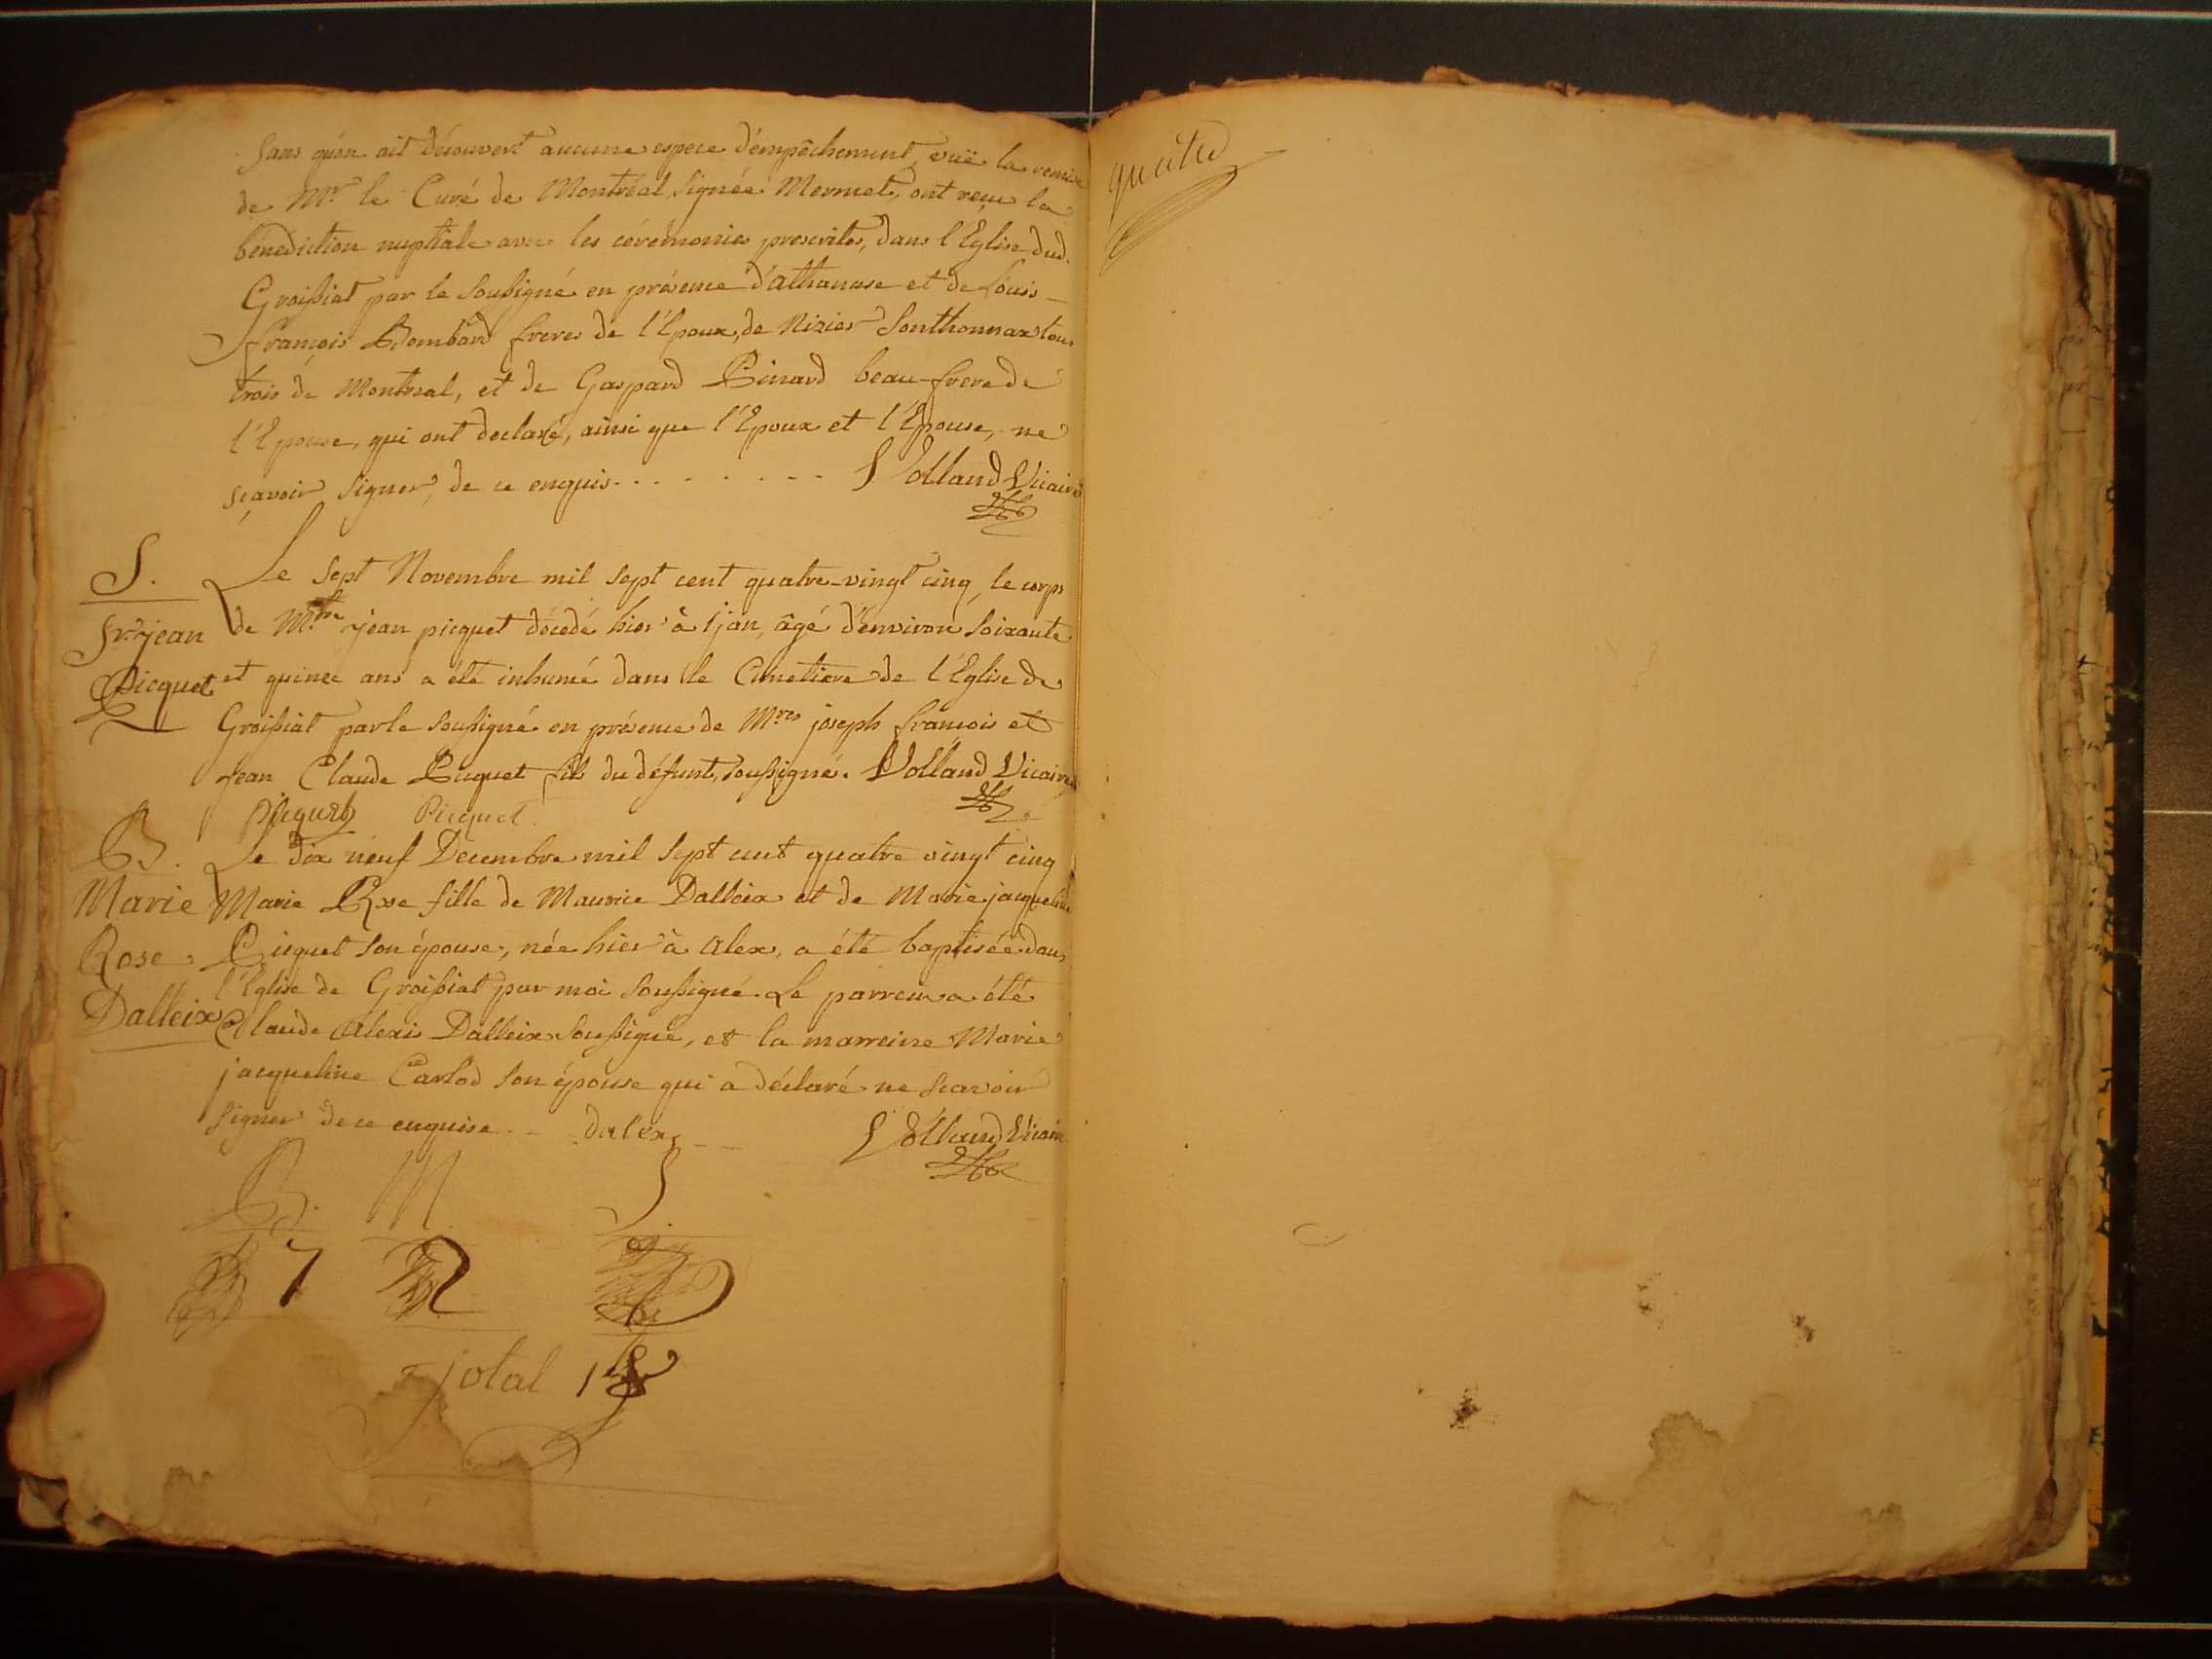 Sans qu'on ait découvert aucune espece d'empêchement, vuë la remise
de Mr. le Curé de Montréal, signée Mermet, ont reçu la
bénédiction nuptiale avec les cérémonies prescrites, dans l'Eglise dud.
Groissiat par le soussigné en présence d'athanase et de Louis
françois Bombard freres de l'Epoux, de Nizier Sonthonnax tous
trois de Montreal, et de Gaspard Pinard beau-frere de
l'Epouse, qui ont declaré, ainsi que l'Epoux et l'Epouse, ne
sçavoir signer, de ce enquis. . . . . . . . Volland Vicaire
S.
Sr. jean
Picquet
Le Sept Novembre mil sept cent quatre-vingt cinq, le corps
de Mtre jean picquet décedé hier à ijan, âgé d'environ soixante
et quinze ans a été inhumé dans le Cimetiere de l'Eglise de
Groissiat par le soussigné en présence de Mres joseph françois et
jean Claude Picquet fils du défunt, soussigné. Volland Vicaire
Picquet Picquet.
B.
Marie
Rose
Dalleix
Le dix neuf Decembre mil sept cent quatre vingt cinq
Marie Rose fille de Maurice Dalleix et de Marie jacqueline
Picquet son épouse, née hier à alex, a été baptisée dans
l'Eglise de Groissiat par moi soussigné. Le parrein a été
Claude alexi Dalleix soussigné, et la marreine Marie
jacqueline Carlod son épouse qui a déclaré ne scavoir
signer de ce enquise. - dalex - Volland Vicaire
B. M. S.
7 2
Total 1
quatre